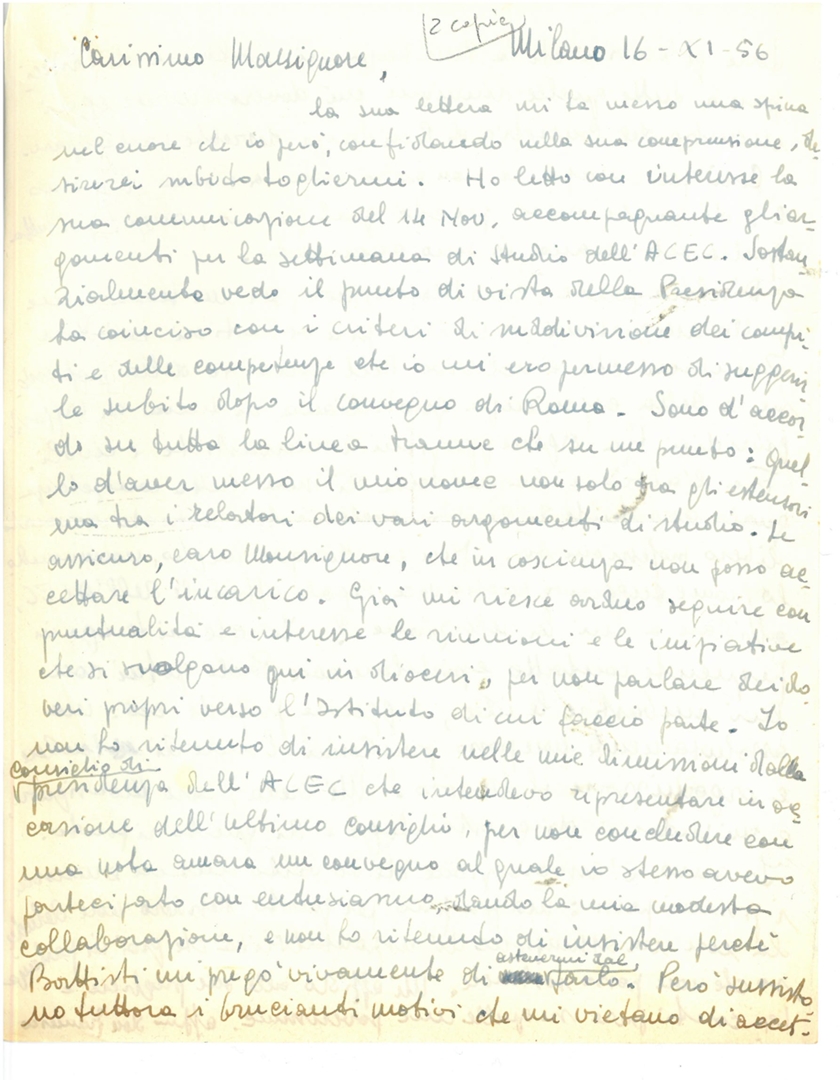 2 copie
Carissimo Monsignore, Milano 16-XI-56
la sua lettera mi ha messo una spina
nel cuore che io però, confidando nella sua comprensione, de
sirerei subito togliermi. Ho letto con interesse la
sua comunicazione del 14 Nov, accompagnante gli ar-
gomenti per la settimana di Studio dell'ACEC. Sostan
zialmente vedo il punto di vista della Presidenza
ha coinciso con i criteri di suddivisione dei compi-
ti e delle competenze che io mi ero permesso di suggerir
le subito dopo il convegno di Roma. Sono d'accor
do su tutta la linea tranne che su un punto: Quel
lo d'aver messo il mio nome non solo tra gli estensori
ma tra i relatori dei vari argomenti di studio. Le
assicuro, caro Monsignore, che in coscienza non posso ac
cettare l'incarico. Già mi riesce arduo seguire con
puntualità e interesse le riunioni e le iniziative
che si svolgono qui in diocesi, per non parlare dei do
veri propri verso l'Istituto di cui faccio parte. Io
non ho ritenuto di insistere nelle mie dimissioni dalla
Consiglio di
presidenza dell'ACEC che intendevo ripresentare in oc
casione dell'ultimo Consiglio, per non concludere con
una nota amara un convegno al quale io stesso avevo
partecipato con entusiasmo, dando la mia modesta
collaborazione, e non ho ritenuto di insistere perché
astenermi dal
Battisti mi pregò vivamente di farlo. Però sussisto
no tuttora i brucianti motivi che mi vietano di accet-